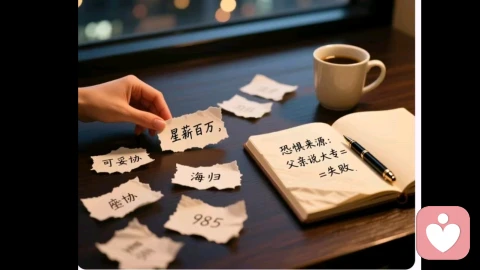 星薪百万。
可妥协
海归
座协
985
恐惧来源:
父亲说大专=
=失败.